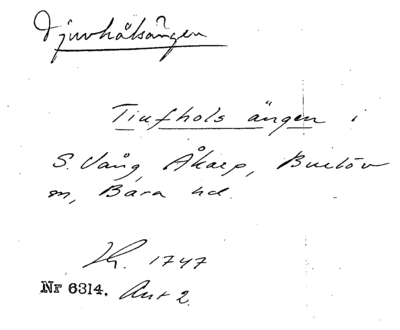 Djuvhålsängen
Tiufhols ängen i
S. Vång, Åkarp, Burlöv
sn, Bara hd.
1747
Nr 6314. Akt 2.